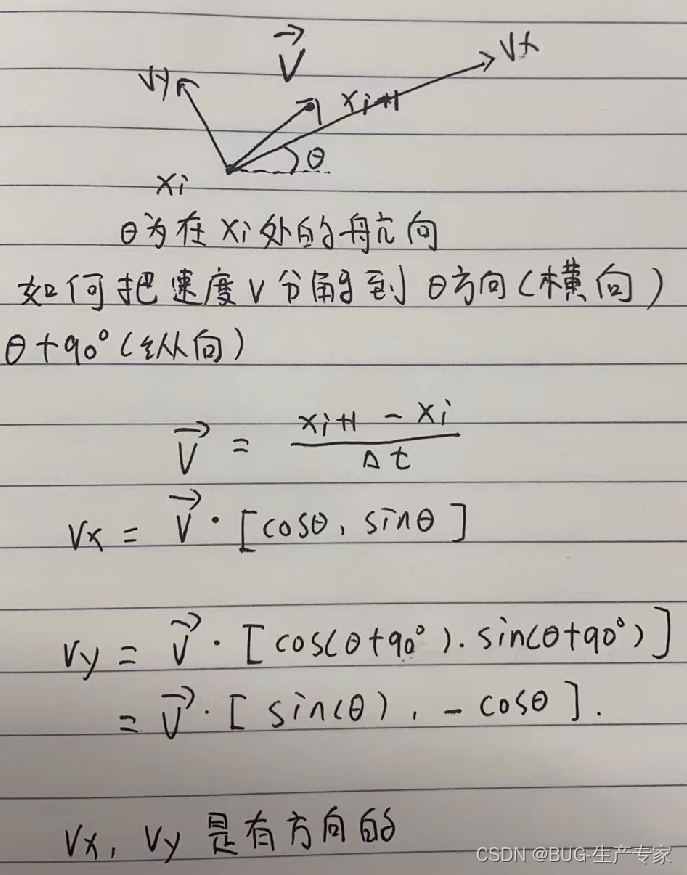 V
Vy
Vx
xi+1
θ
xi
θ为在xi处的航向
如何把速度V分解到θ方向(横向)
θ+90°(纵向)
V = (xi+1 - xi) / Δt
Vx = V · [cosθ, sinθ]
Vy = V · [cos(θ+90°). sin(θ+90°)]
= V · [sin(θ), -cosθ].
Vx, Vy 是有方向的
CSDN @BUG·生产专家